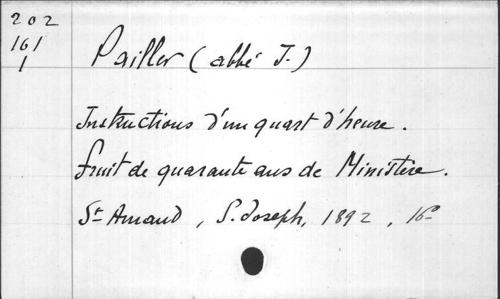 202
161
1
Pailler (abbé J.)
Instructions d'un quart d'heure.
fruit de quarante ans de Ministère.
St Amand, S. Joseph, 1892, 16º